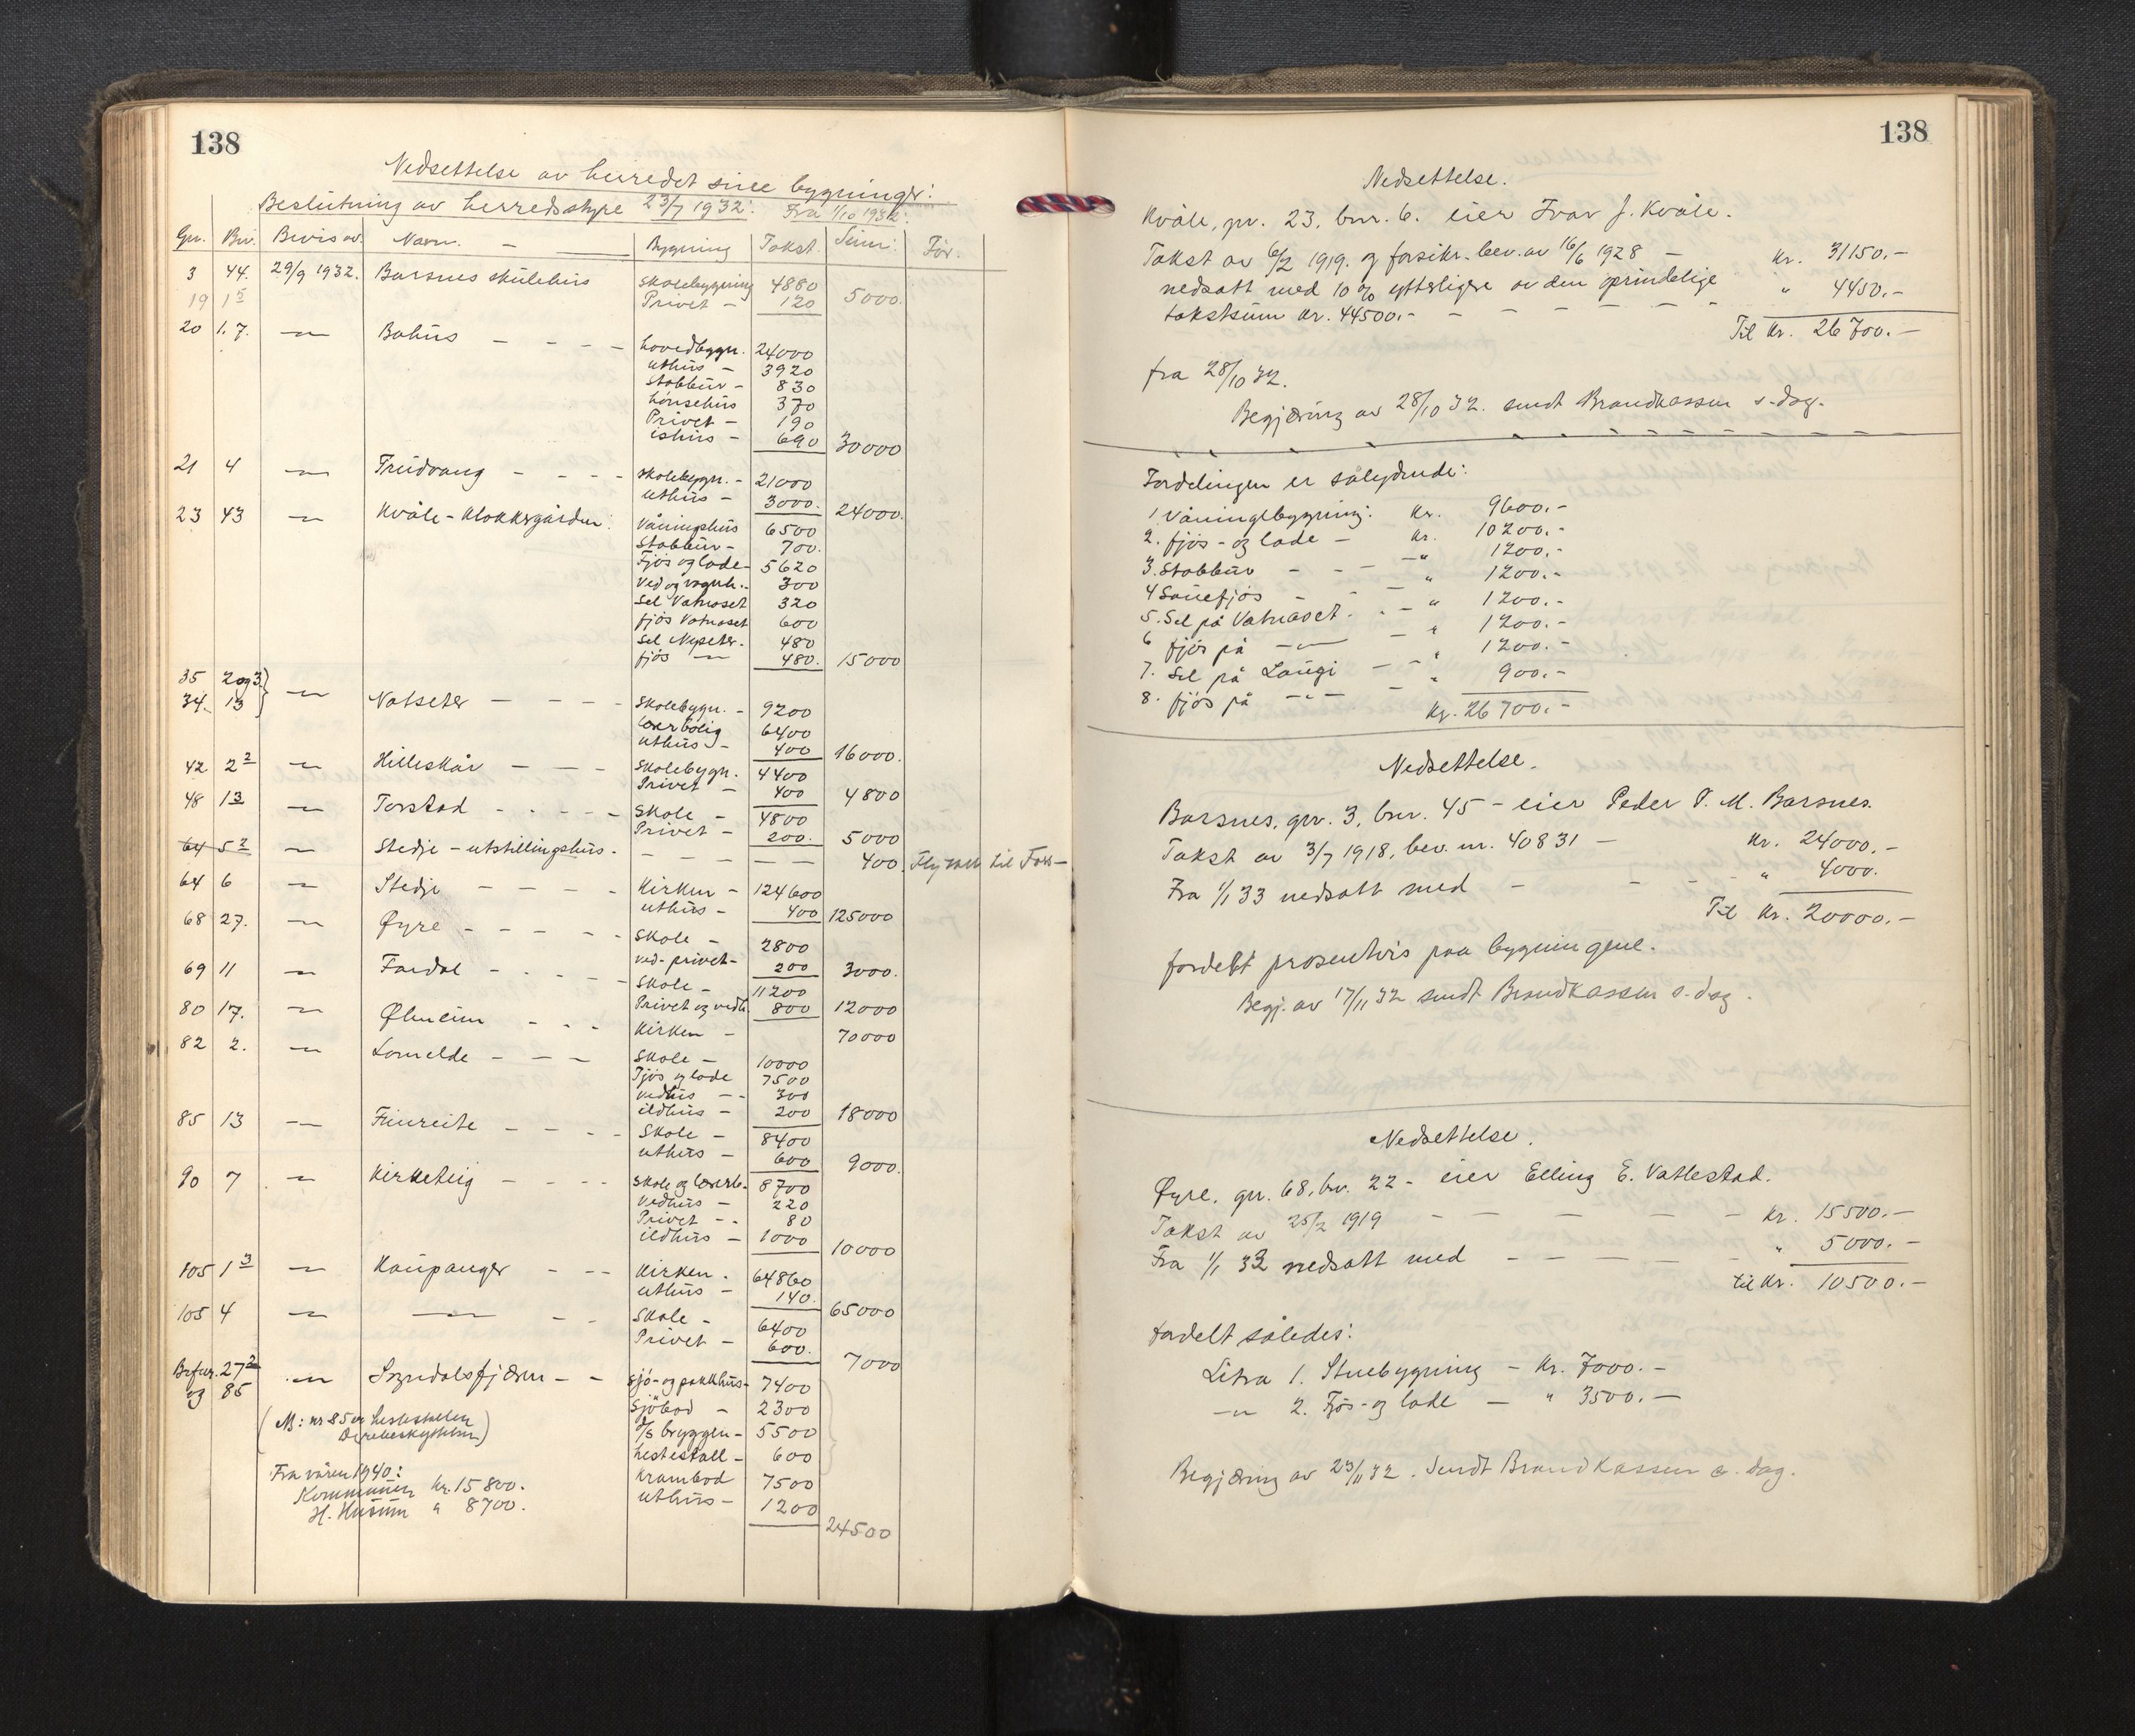 138
Nedsettelse av herredet sine bygninger:
Beslutning av herredsstyre 23/7 1932. Fra 1/10 1932.
Gnr. Bnr. Bevis av. Navn. — Bygning Takst. Sum: Før.
3 44. 29/9 1932. Barsnes skulehus Skolebygning 4880
19 1 5 Privet — 120 5000.
20 1.7. —"— Bahus — - - - hovedbygn. 24000
uthus — 3920
Stabbur — 830
hønsehus 370
Privet — 190
ishus — 690 30000
21 4 —"— Trudvang - - - - Skolebygn. - 21000
uthus — 3000. 24000.
23 43 —"— Kvåle - Klokkergården: Våningshus 6500
Stabbur - 700.
Fjøs og lade - 5620
Ved og vognh. - 300
Sel Vatnaset 320
fjøs Vatnaset 600
Sel Nyseter. 480
fjøs —"— 480. 15000
35 2 og 3 }
34. 13 } —"— Natseter — — - - Skolebygn. - 9200
lærerbolig 6400
uthus - 400 16000.
42 2 2 —"— Hilleskår — — - Skolebygn. 4400
Privet — 400 4800
48 13 —"— Torstad - - - - Skole — 4800
Privet — 200. 5000
64 5 2 —"— Stedje - utstillingshus. - - - - — 400. Flyttet til Foss—
64 6 —"— Stedje — - - - Kirken - 124600
uthus - 400 125000
68 27. —"— Øyre - - - - - Skole — 2800
ved- privet - 200 3000.
69 11 —"— Fardal - - - - Skole — 11200
Privet og vedh. 800 12000
80 17. —"— Ølmeim - - - Kirken — 70000
82 2. —"— Lomelde - — — Skole — 10000
Fjøs og lade 7500
vedhus - - 300
ildhus — 200 18000
85 13 —"— Fimreite - - - - Skole — 8400
uthus — 600 9000.
90 7 —"— Kirketeig - - - - Skole og lærerb. 8700
Vedhus — 220
Privet - - 80
ildhus — 1000 10000
105 1 3 —"— Kaupanger - - - Kirken. 64860
uthus - 140. 65000
105 4 —"— —"— - - Skole — 6400
Privet — 600. 7000
Brfnr. 27 2 —"— Sogndalsfjøren — - Sjø- og pakkhus - 7400
og 85 Sjøbod — 2300
(NB: nr 85 er hestestallen D/S bryggen — 5500
Dyrebeskyttelsen) hestestall — 600
Fra våren 1940: Krambod 7500
Kommunen kr. 15800. uthus — 1200
H. Husum " 8700. 24500
138
Nedsettelse.
Kvåle, gnr. 23, bnr. 6. eier Ivar J. Kvåle.
Takst av 6/2 1919. og forsikr. bev. av 16/6 1928 — kr. 31150.-
nedsatt med 10 % ytterligere av den oprindelige " 4450.-
takstsum kr. 44500.- - - - - - -
Til kr. 26700.-
fra 28/10 32.
Begjæring av 28/10 32. sendt Brandkassen s.dag.
Fordelingen er sålydende:
1. Våningsbygning: kr. 9600.-
2. fjøs- og lade — kr. 10200.-
3. Stabbur - - - " 1200.-
4. Sauefjøs - - - " 1200.-
5. Sel på Vatnaset. - - " 1200.-
6. fjøs på —"— - " 1200.-
7. Sel på Laugi - - " 1200.-
8. fjøs på —"— - " 900.-
Kr. 26700.-
Nedsettelse.
Barsnes, gnr. 3, bnr. 45 - eier Peder P. M. Barsnes.
Takst av 3/7 1918, bev. nr. 40831 — kr. 24000.-
Fra 1/1 33 nedsatt med - - - - " 4000.
Til kr. 20000.-
fordelt prosentvis paa bygningene.
Begj. av 17/11 32 sendt Brandkassen s.dag.
Nedsettelse.
Øyre, gnr. 68, bnr. 22 - eier Elling E. Vatlestad.
Takst av 25/2 1919 - - - - - kr. 15500.-
Fra 1/1 33 nedsatt med - - - - " 5000.-
til kr. 10500.-
fordelt således:
Litra 1. Stuebygning - kr. 7000.-
—"— 2. Fjøs- og lade — " 3500.-
Begjæring av 23/11 32. Sendt Brandkassen s. dag.